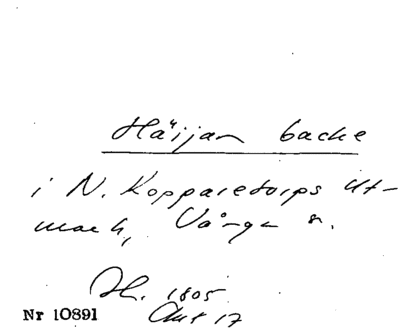 Häijan backe
i N. Kopparetorps Ut-
mark, Vånga s.
H. 1805
Akt 17
Nr 10891